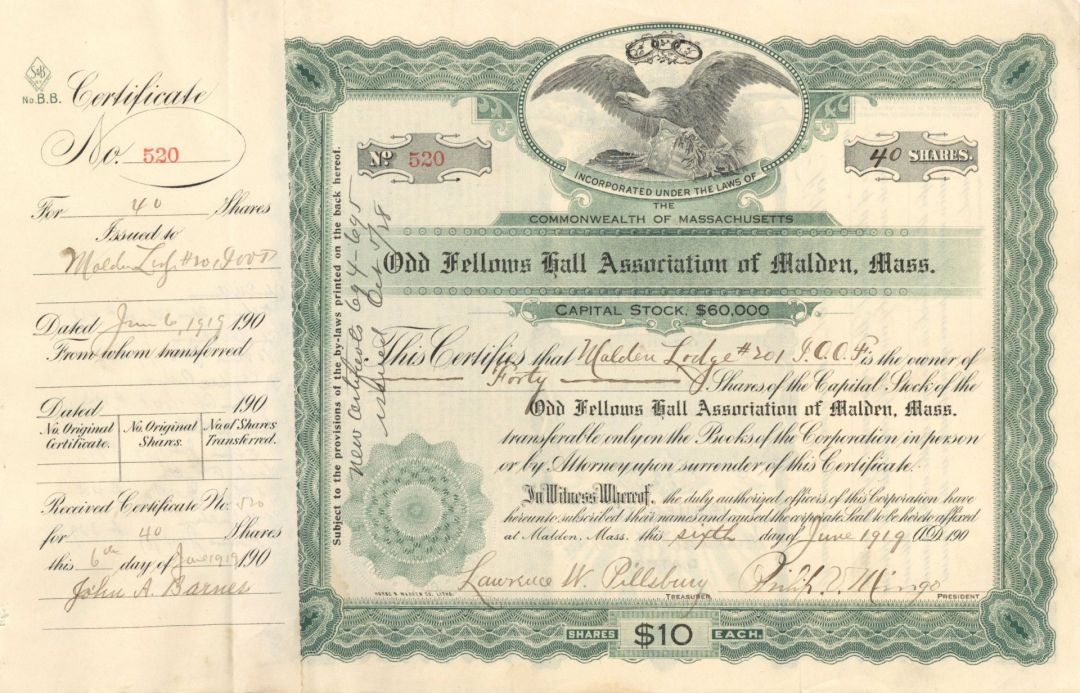 S&B
No. B.B. Certificate
No. 520
For 40 Shares
Issued to
Malden Lodge #201, I.O.O.F.
Dated June 6, 1919 190
From whom transferred
Dated 190
No. Original Certificate. No. Original Shares. No. of Shares Transferred.
Received Certificate No. 520
for 40 Shares
this 6th day of June 1919 190
John A. Barnes
Subject to the provisions of the by-laws printed on the back hereof.
New certificates 694-695
issued Oct 5/28
No 520
40 SHARES.
INCORPORATED UNDER THE LAWS OF
THE
COMMONWEALTH OF MASSACHUSETTS
Odd Fellows Hall Association of Malden, Mass.
CAPITAL STOCK, $60,000
This Certifies that Malden Lodge #201 I.O.O.F. is the owner of
Forty Shares of the Capital Stock of the
Odd Fellows Hall Association of Malden, Mass.
transferable only on the Books of the Corporation in person
or by Attorney upon surrender of this Certificate.
In Witness Whereof, the duly authorized officers of this Corporation have
hereunto subscribed their names and caused the corporate Seal to be hereto affixed
at Malden, Mass. this sixth day of June 1919 A.D. 190
Lawrence W. Pillsbury
TREASURER
Philip V. Mingo
PRESIDENT
SHARES $10 EACH.